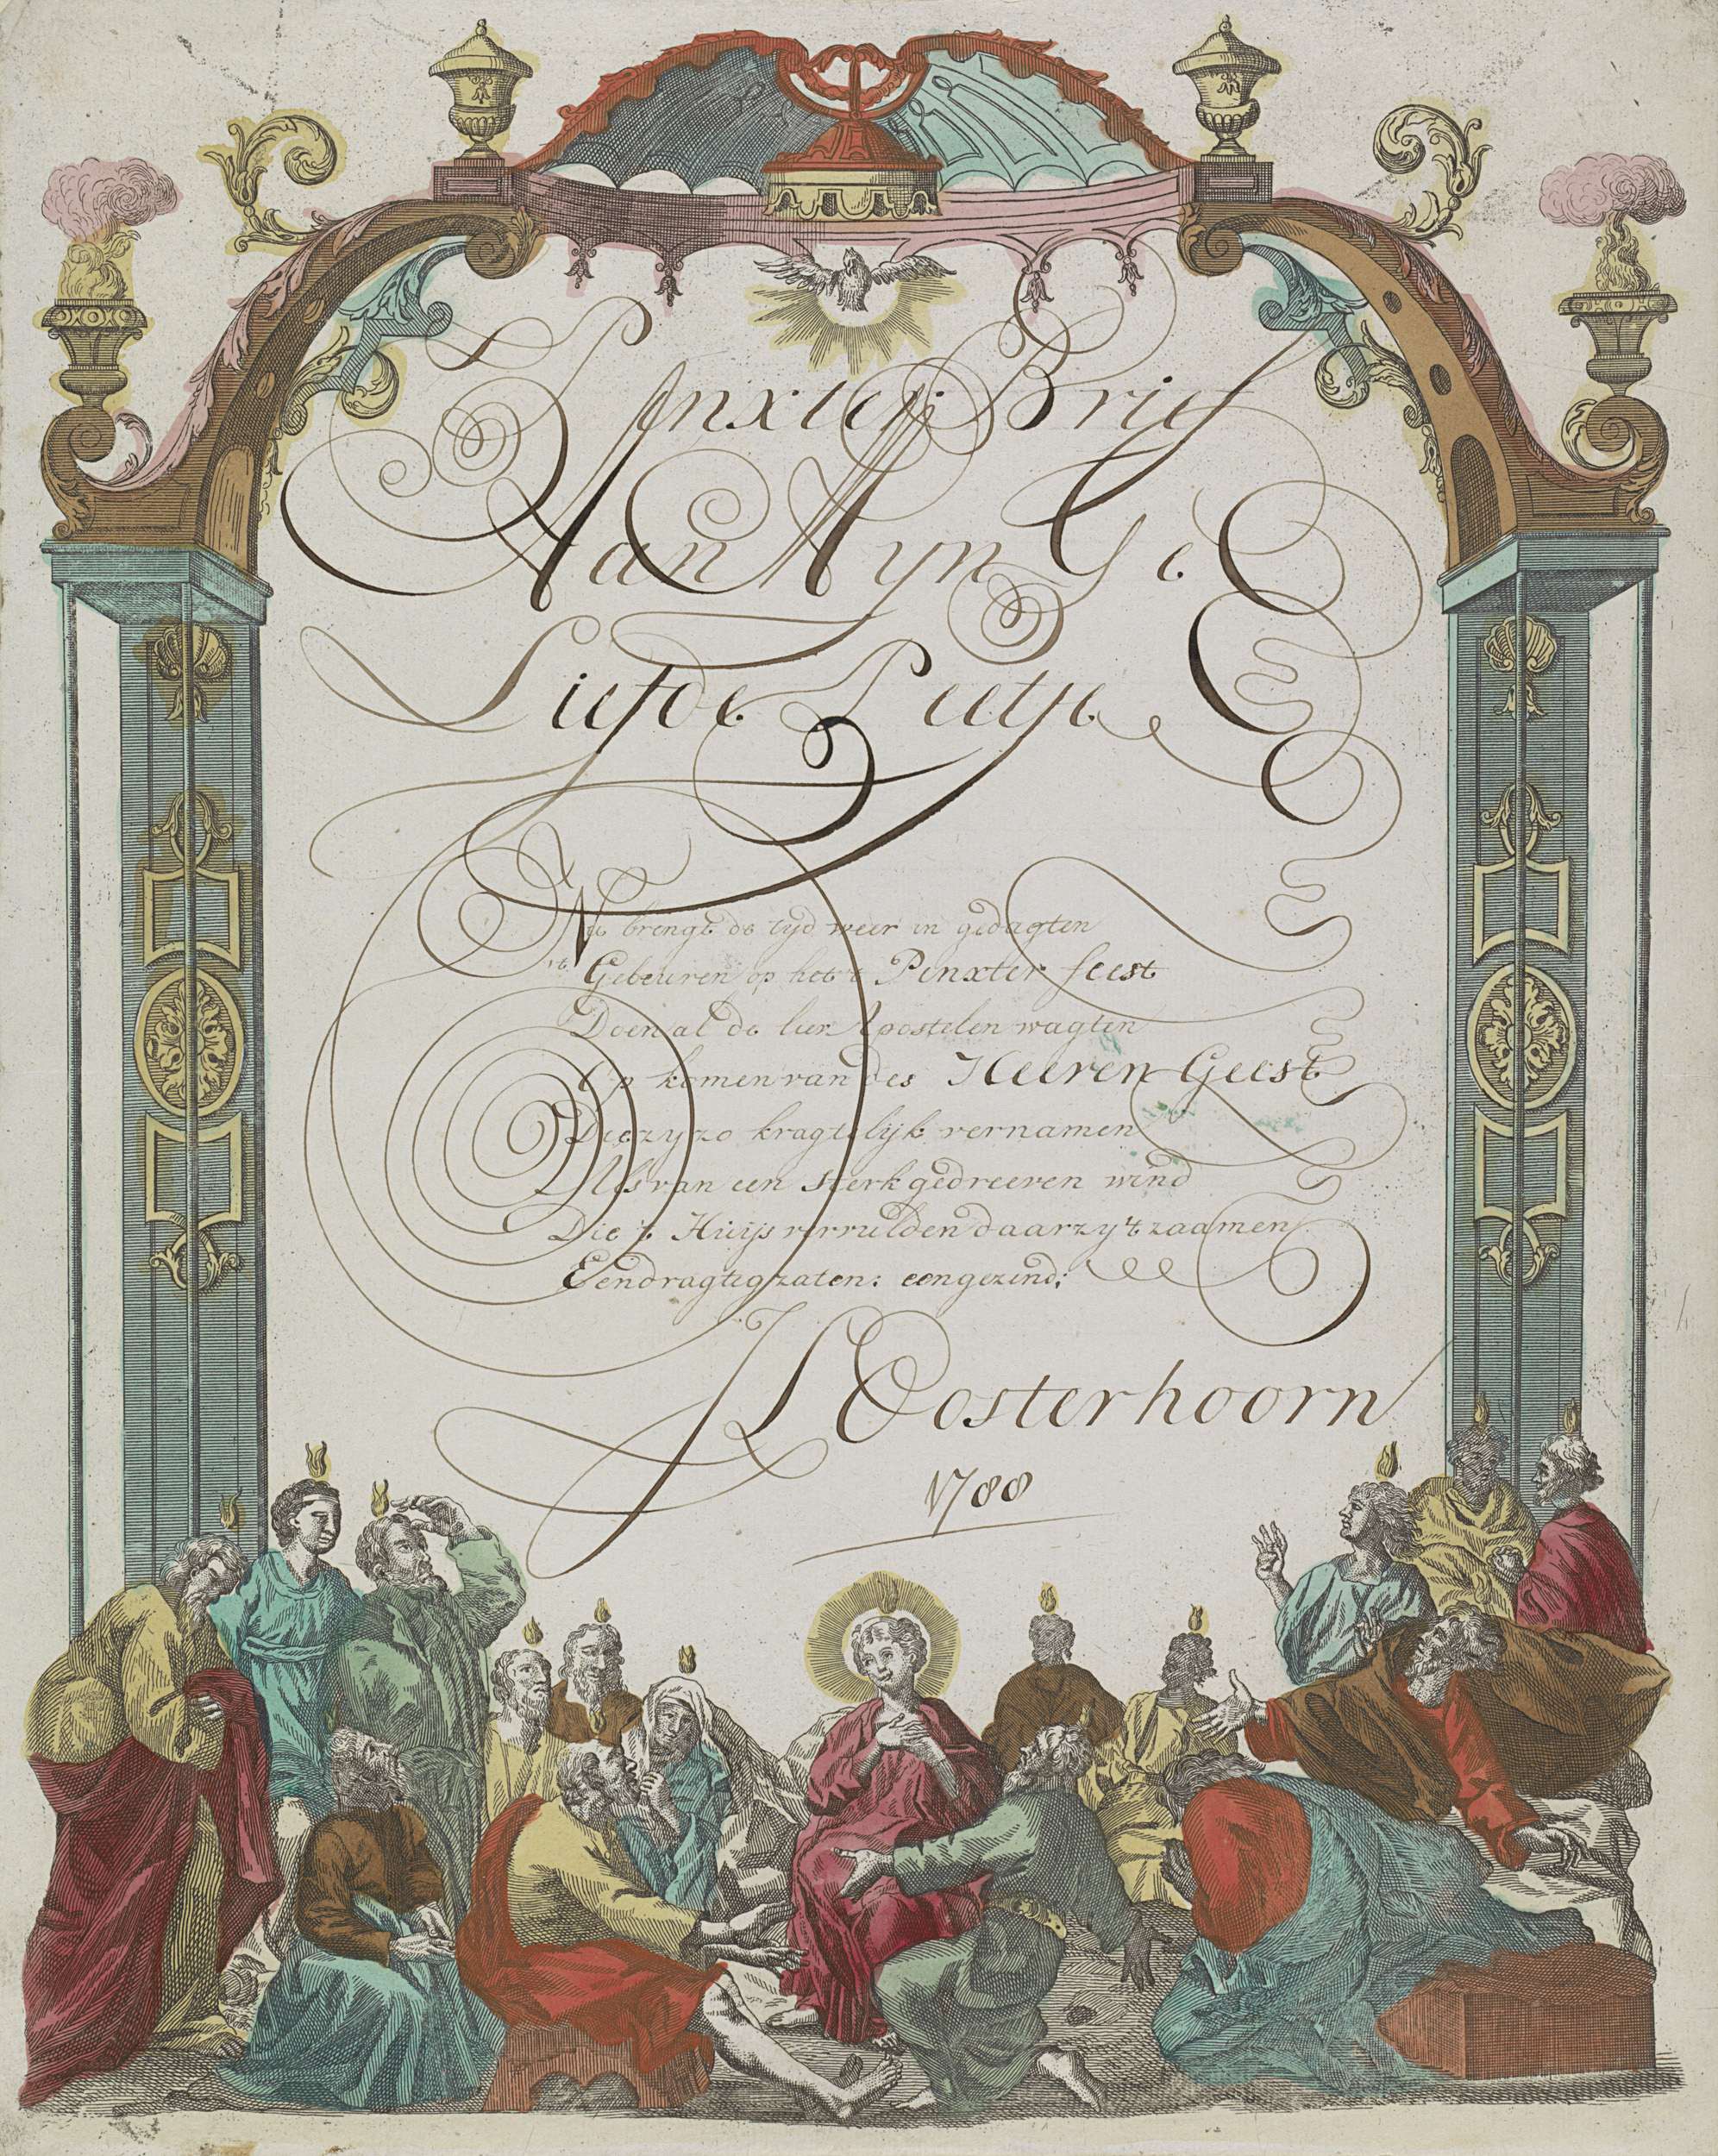 Pinxter Brief
Aan Myn Ge
Liefde Peetje
Nu brengt de tyd weer in gedagten
't Gebeuren op het Pinxter feest
Doen al de lier Apostelen wagten
Op komen van des Heeren Geest
Die zy zo kragtelijk vernamen
Als van een sterk gedreeven wind
Die 't Huijs vervulden daar zy 't zaamen
Eendragtig zaten: eengezind:
J L Oosterhoorn
1788